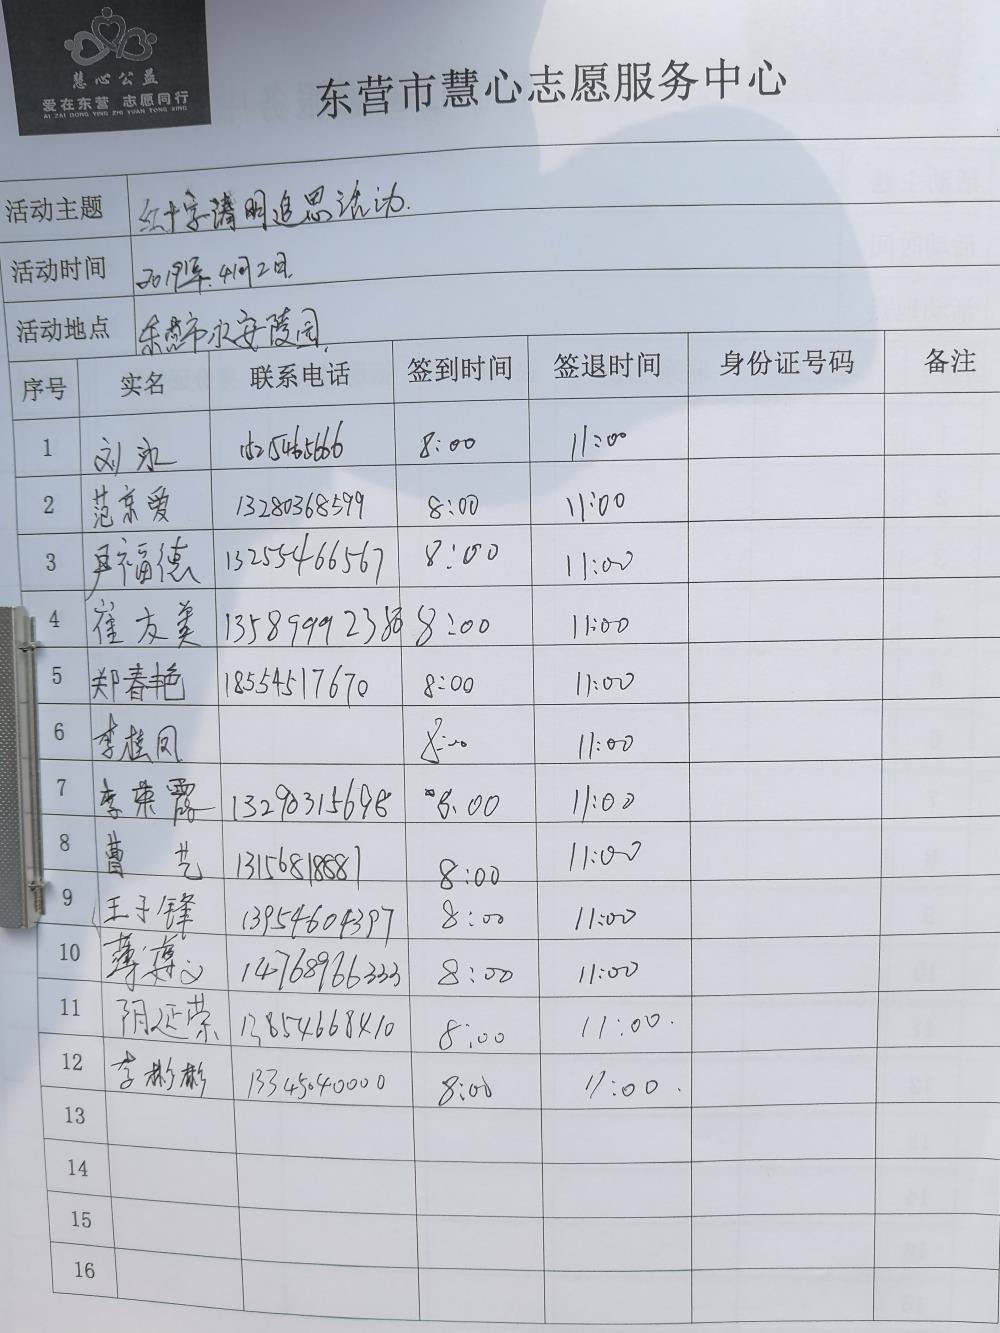 慧心公益
爱在东营 志愿同行
AI ZAI DONG YING ZHI YUAN TONG XING
东营市慧心志愿服务中心
活动主题 红十字清明追思活动.
活动时间 2019年.4月2日
活动地点 东营市永安陵园
序号 实名 联系电话 签到时间 签退时间 身份证号码 备注
1 刘永 8:00 11:00
2 范东爱 13280368599 8:00 11:00
3 尹福德 13255466567 8:00 11:00
4 崔友美 8:00 11:00
5 郑春艳 18554517670 8:00 11:00
6 李桂凤 8:00 11:00
7 李荣霞 13290315698 8:00 11:00
8 曹艺 8:00 11:00
9 王子锋 13954604397 8:00 11:00
10 14768966333 8:00 11:00
11 阴延荣 13854668410 8:00 11:00.
12 李彬彬 13345040000 8:00 11:00.
13
14
15
16